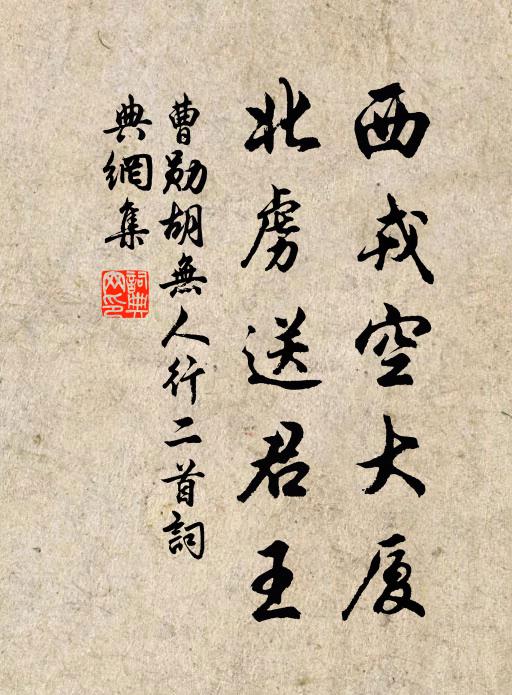 西戎空大厦
北虏送君王
曹勋胡無人行二首詞
典網集
詞典網印